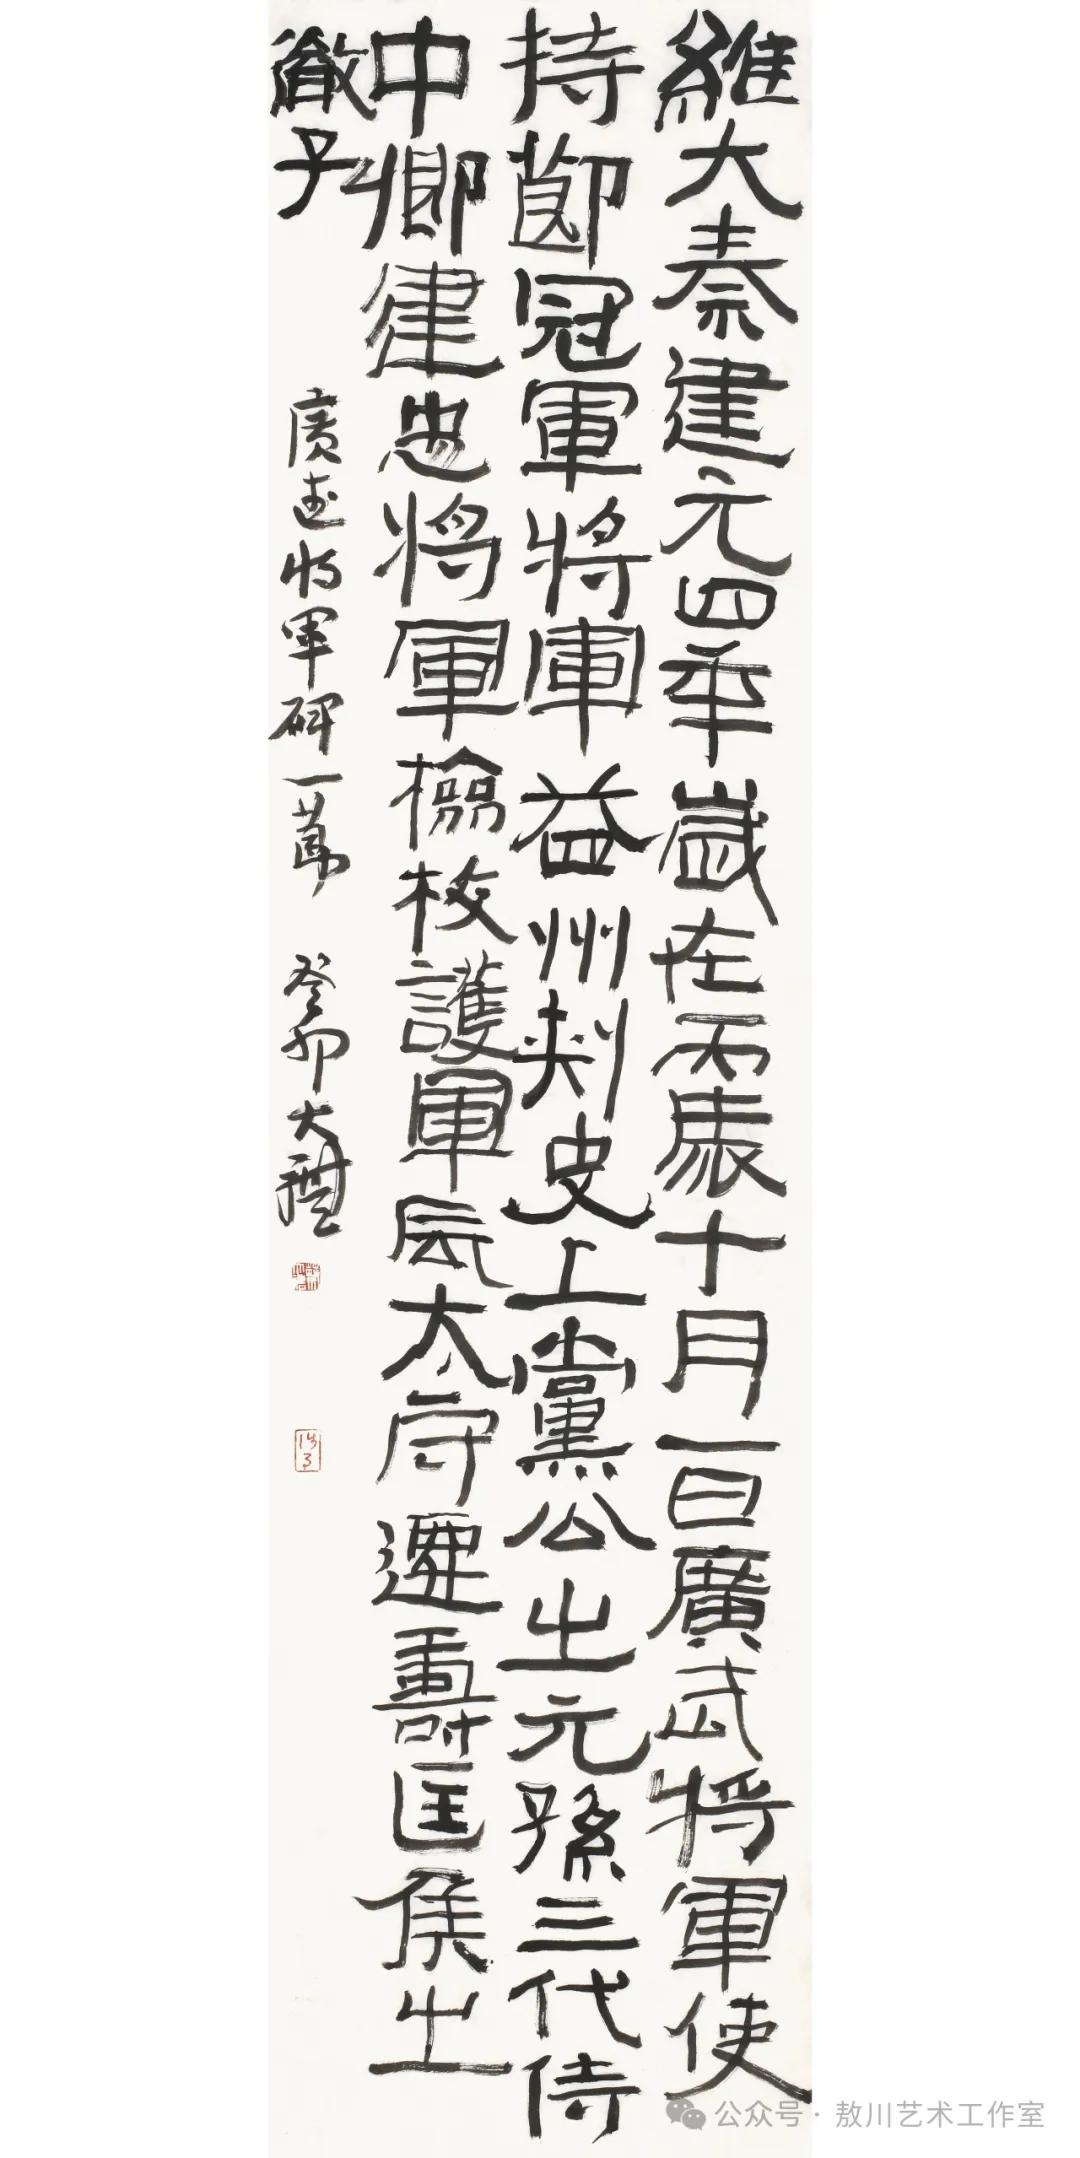 維大秦建元四年歲在丙辰十月一日廣武將軍使
持節冠軍將軍益州刺史上黨公之元孫三代侍
中卿建忠將軍檢校護軍辰太守遷壽匡侯之
徹子
廣武將軍碑一節 癸卯大禮
公众号·敖川艺术工作室